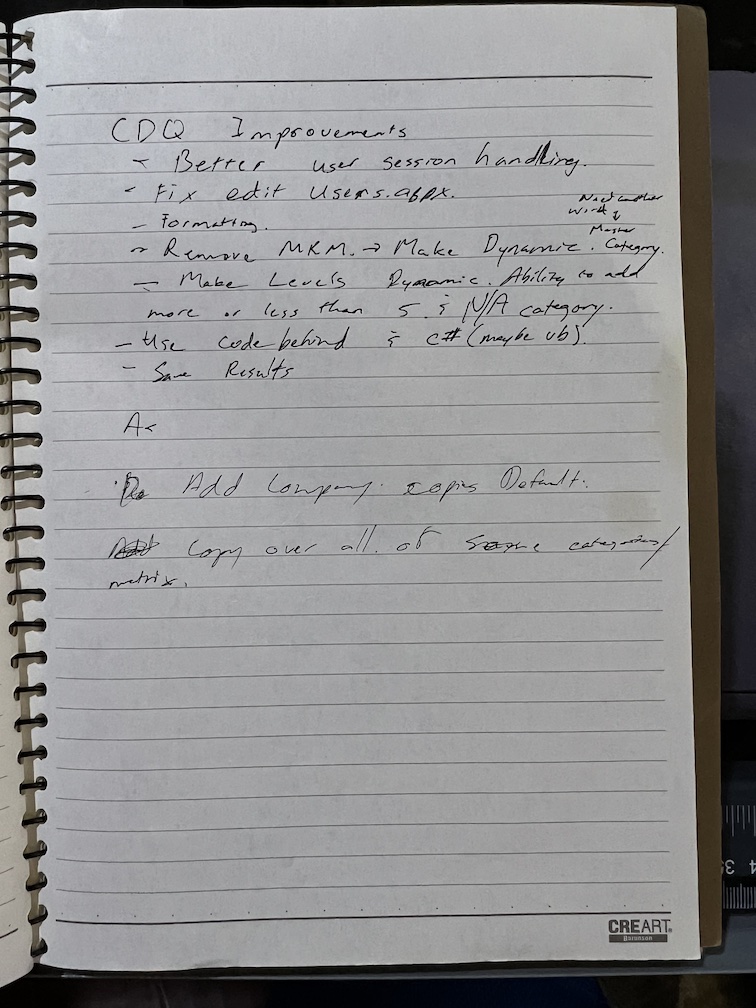 CDQ Improvements
- Better user session handling.
- Fix edit Users.aspx.
- Formatting.
Need another
Word
- Remove MKM. → Make Dynamic. Master Category.
- Make Levels Dynamic. Ability to add
more or less than 5. & N/A category.
- Use code behind & c# (maybe vb)
- Save Results
A
Add Company. copies Default.
Copy over all. of categories/
matrix.
CREART